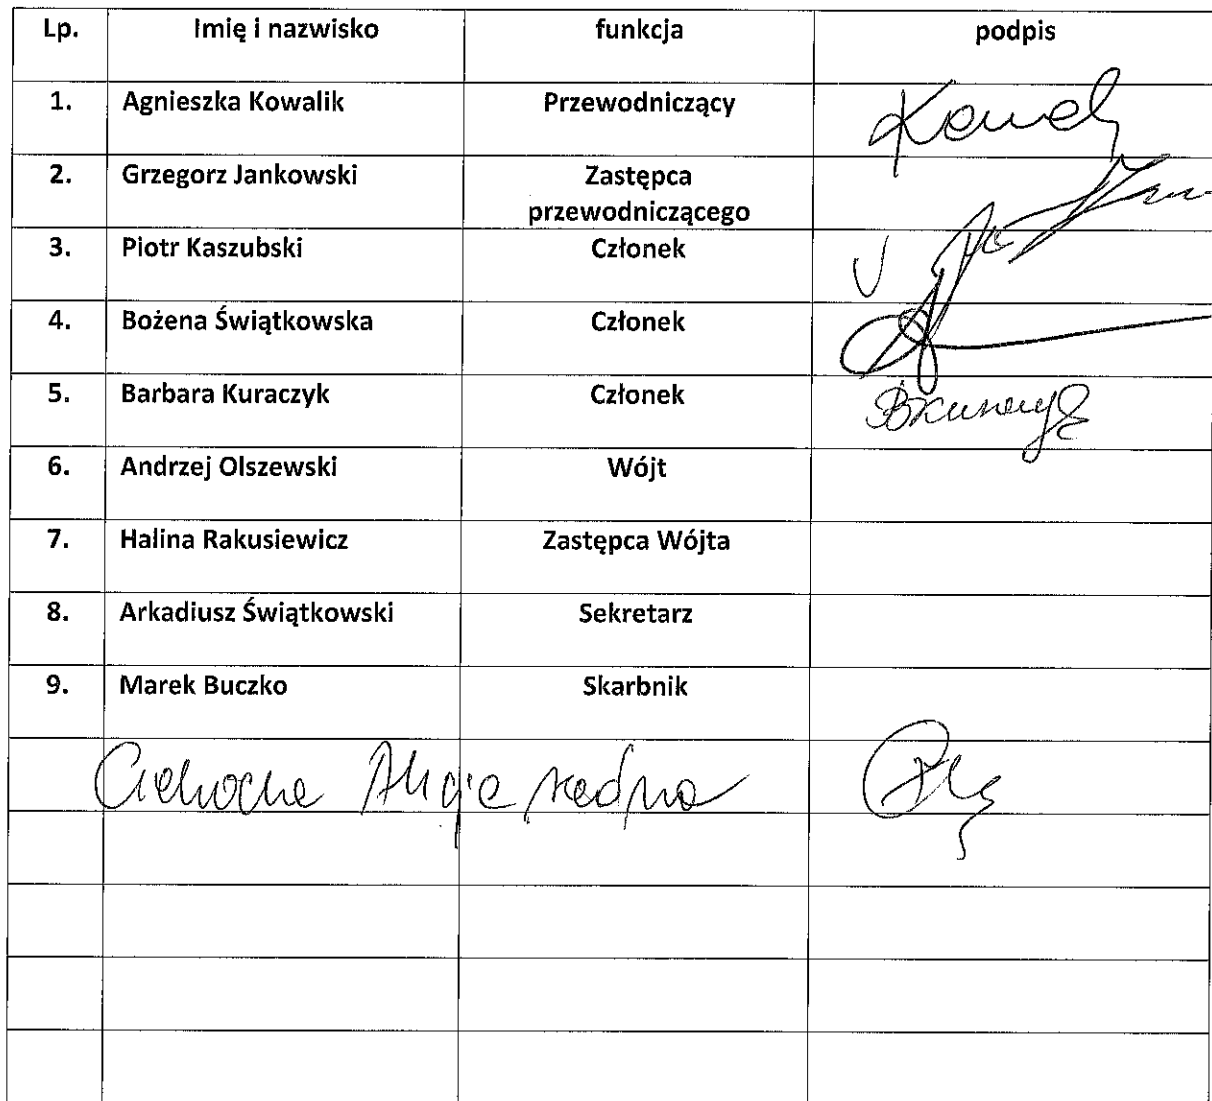 Lp. Imię i nazwisko funkcja podpis
1. Agnieszka Kowalik Przewodniczący
2. Grzegorz Jankowski Zastępca
przewodniczącego
3. Piotr Kaszubski Członek
4. Bożena Świątkowska Członek
5. Barbara Kuraczyk Członek
6. Andrzej Olszewski Wójt
7. Halina Rakusiewicz Zastępca Wójta
8. Arkadiusz Świątkowski Sekretarz
9. Marek Buczko Skarbnik
radna